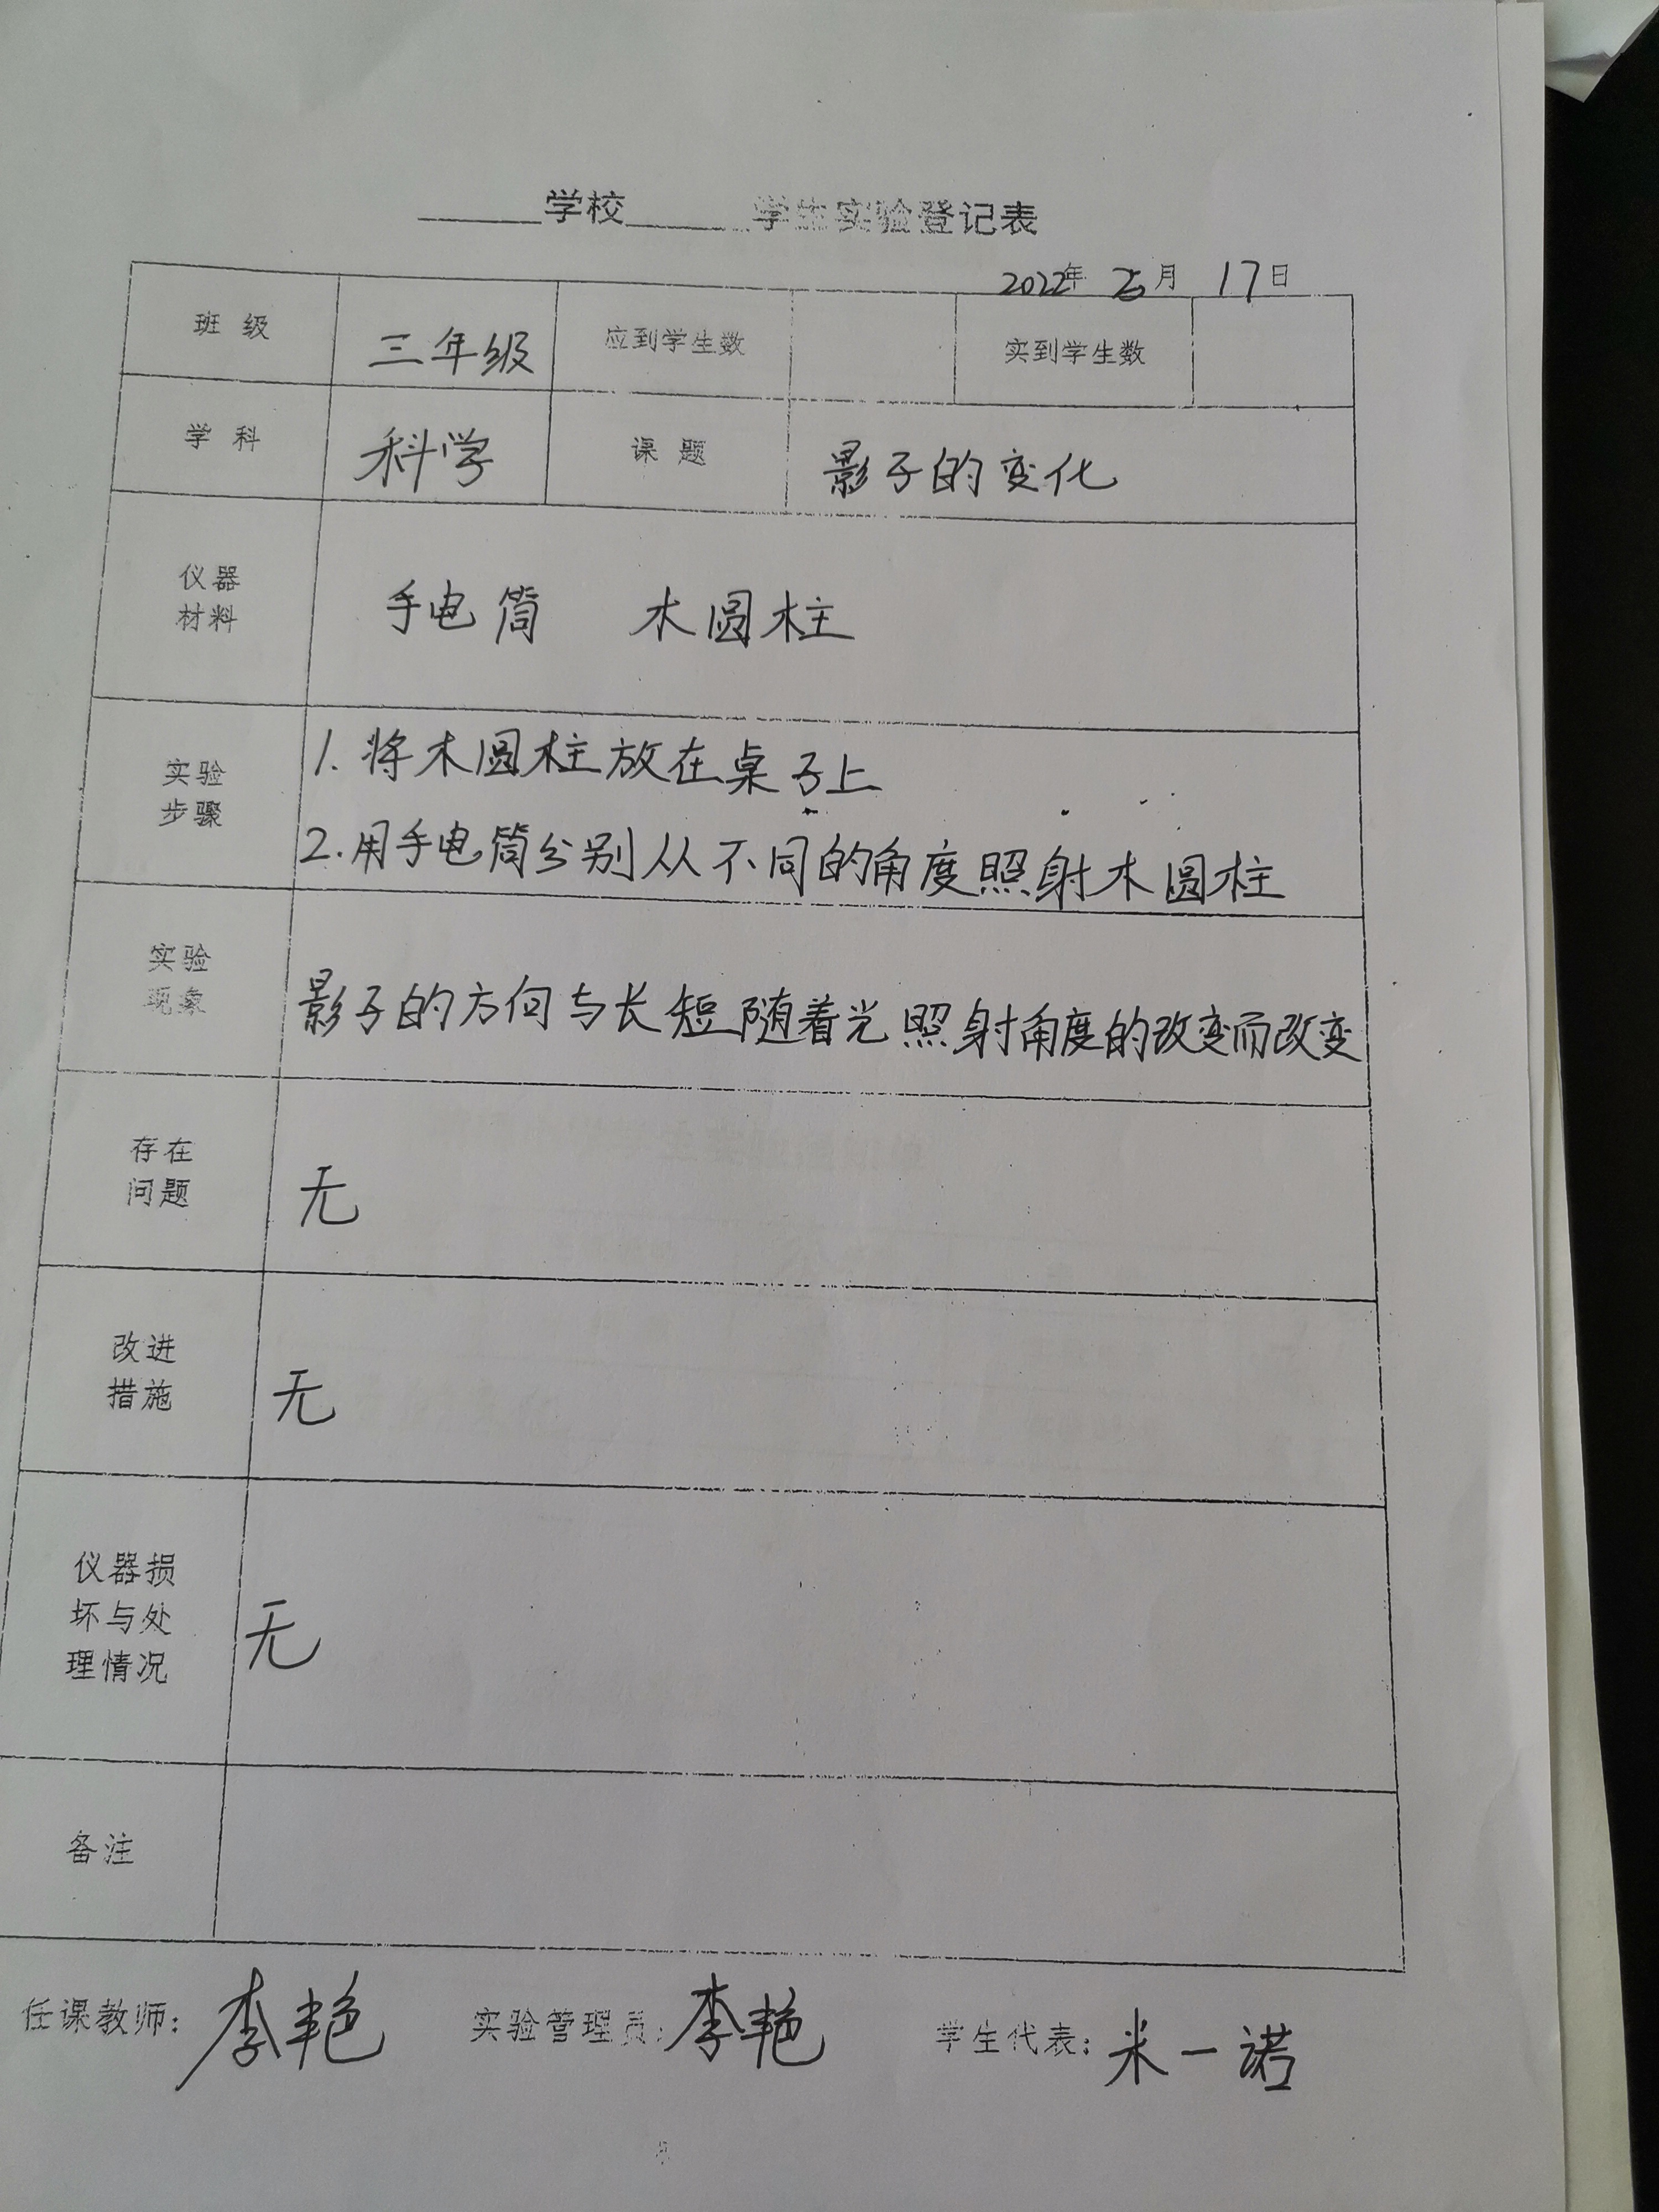 ______学校______学生实验登记表
2022年 月 17日
班级 三年级 应到学生数 实到学生数
学科 科学 课题 影子的变化
仪器
材料
手电筒 木圆柱
实验
步骤
1.将木圆柱放在桌子上
2.用手电筒分别从不同的角度照射木圆柱
实验
现象
影子的方向与长短随着光照射角度的改变而改变
存在
问题
无
改进
措施
无
仪器损
坏与处
理情况
无
备注
任课教师：李艳 实验管理员：李艳 学生代表：米一诺